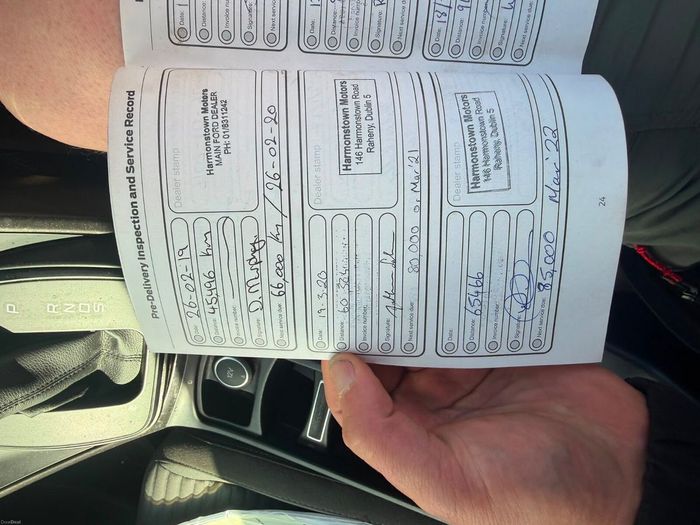 Pre-Delivery Inspection and Service Record
Dealer stamp
Harmonstown Moters
MAIN FORD DEALER
PH: 01/8311242
Date: 26-02-19
Distance: 45496 km
Invoice number:
Signature: D. Murphy
Next service due: 66,000 km / 26-02-20
Dealer stamp
Harmonstown Motors
146 Harmonstown Road
Raheny, Dublin 5
Date: 19.3.20
Distance: 60 324
Invoice number:
Signature:
Next service due: 80,000 or Mar '21
Dealer stamp
Harmonstown Motors
146 Harmonstown Road
Raheny, Dublin 5
Date:
Distance: 65466
Invoice number:
Signature:
Next service due: 85,000 Mar '22
24
Date:
Distance:
Invoice
Signature:
Next service
Date:
Distance:
Invoice number
Signature:
Next service due:
Date:
Distance:
Invoice number
Signature:
Next service due:
P R N D S
12V
DoneDeal